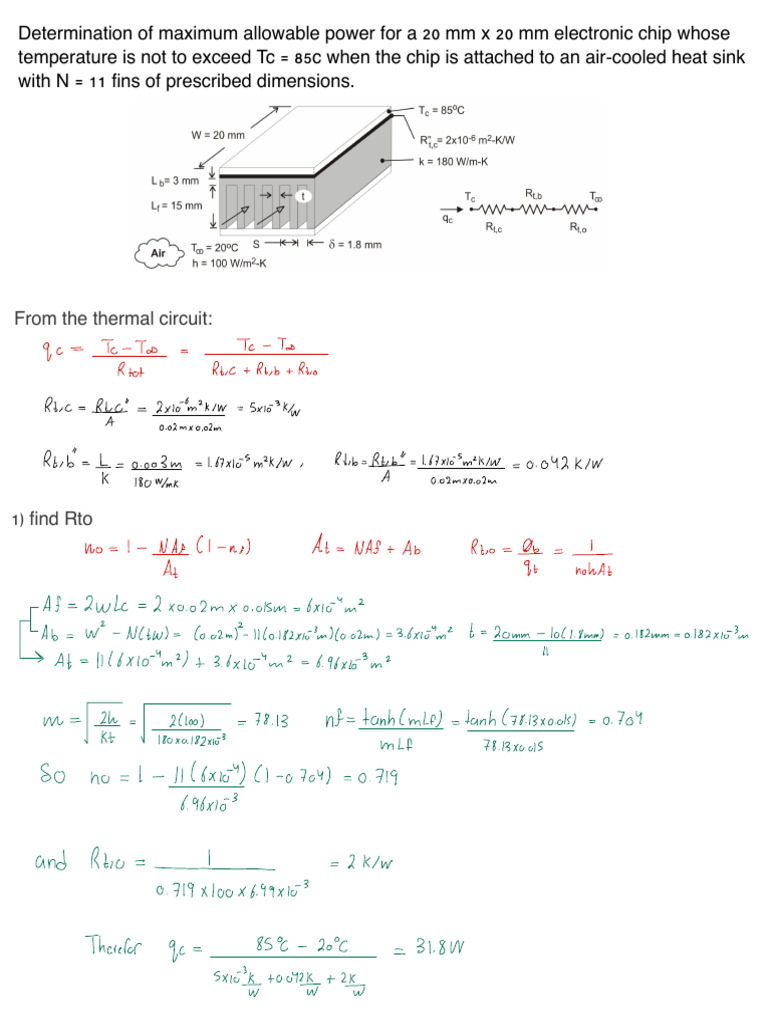 Determination of maximum allowable power for a 20 mm x 20 mm electronic chip whose
temperature is not to exceed Tc = 85C when the chip is attached to an air-cooled heat sink
with N = 11 fins of prescribed dimensions.
W = 20 mm
Tc = 85ºC
R"t,c = 2x10-6 m2-K/W
k = 180 W/m-K
Lb = 3 mm
Lf = 15 mm
t
Air
T∞ = 20ºC
h = 100 W/m2-K
S
δ = 1.8 mm
Tc Rt,b T∞
qc Rt,c Rt,o
From the thermal circuit:
qc = (Tc - T∞)/Rtot = (Tc - T∞)/(Rt,c + Rt,b + Rt,o)
Rt,c = Rt,c"/A = 2x10⁻⁶ m²k/W / 0.02mx0.02m = 5x10⁻³ k/W
Rt,b" = L/K = 0.003m / 180 W/mk = 1.67x10⁻⁵ m²k/W , Rt,b = Rt,b"/A = 1.67x10⁻⁵ m²k/W / 0.02mx0.02m = 0.042 K/W
1) find Rto
no = 1 - NAf/At (1-nf) At = NAf + Ab Rt,o = θb/qt = 1/nohAt
Af = 2wLc = 2 x 0.02m x 0.015m = 6x10⁻⁴ m²
Ab = w² - N(tw) = (0.02m)² - 11(0.182x10⁻³m)(0.02m) = 3.6x10⁻⁴ m² t = 20mm - 10(1.8mm) / 11 = 0.182mm = 0.182x10⁻³m
At = 11(6x10⁻⁴m²) + 3.6x10⁻⁴m² = 6.96x10⁻³m²
m = √(2h/kt) = √(2(100) / 180x0.182x10⁻³) = 78.13 nf = tanh(mLf)/mLf = tanh(78.13x0.015) / 78.13x0.015 = 0.704
So no = 1 - 11(6x10⁻⁴)/6.96x10⁻³ (1-0.704) = 0.719
and Rt,o = 1 / 0.719 x 100 x 6.99x10⁻³ = 2 K/W
Therefor qc = 85°C - 20°C / 5x10⁻³ K/W + 0.042 K/W + 2 K/W = 31.8W